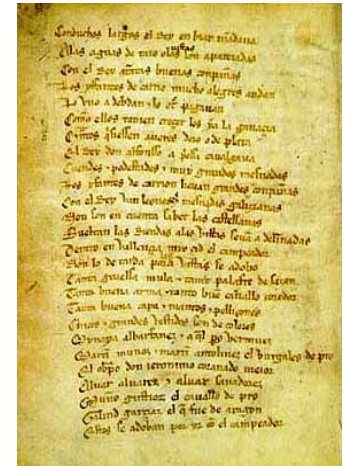 Conduchos largos el Rey enbiar mãdaua
Alas aguas de taio olas vistas son apareiadas
Con el Rey atãtas buenas conpañas
Los yffantes de carrio mucho alegres andan
Lo vno adebdan & lo ot° pagauan
Como ellos tenien creçer les ya la ganaçia
Qⁿtos qⁱsiessen aueres doro o de plata
El Rey don alfonsso a pⁱessa caualgaua
Cuendes & podestades & muy grandes mesnadas
Los yfantes de carrion lieuan grandes conpañas
Con el Rey van leoneses & mesnadas galizianas
Non son en cuenta sabet las castellanas
Sueltan las Riendas alas vistas se uã a deliñadas
Dentro en vallençia myo çid el campeador
Non lo de tarda pora las vistas se adobo
Tanta gruessa mula & tanto palafre de sazon
Tanta buena arma & tanto buẽ cauallo coredor
Tanta buena capa & mantos & pelliçones
Chicos & grandes vestidos son de colores
Mynaya albarfanez & aql po vermuez
Martĩ munoz & martĩ antolinez el burgales de pro
El obpo don ieronimo coranado meior
Aluar aluarez & aluar saluadorez
Muño gustioz el cauallo de pro
Galind garçiaz el q fue de aragon
Estos se adoban por yr cõ el campeador